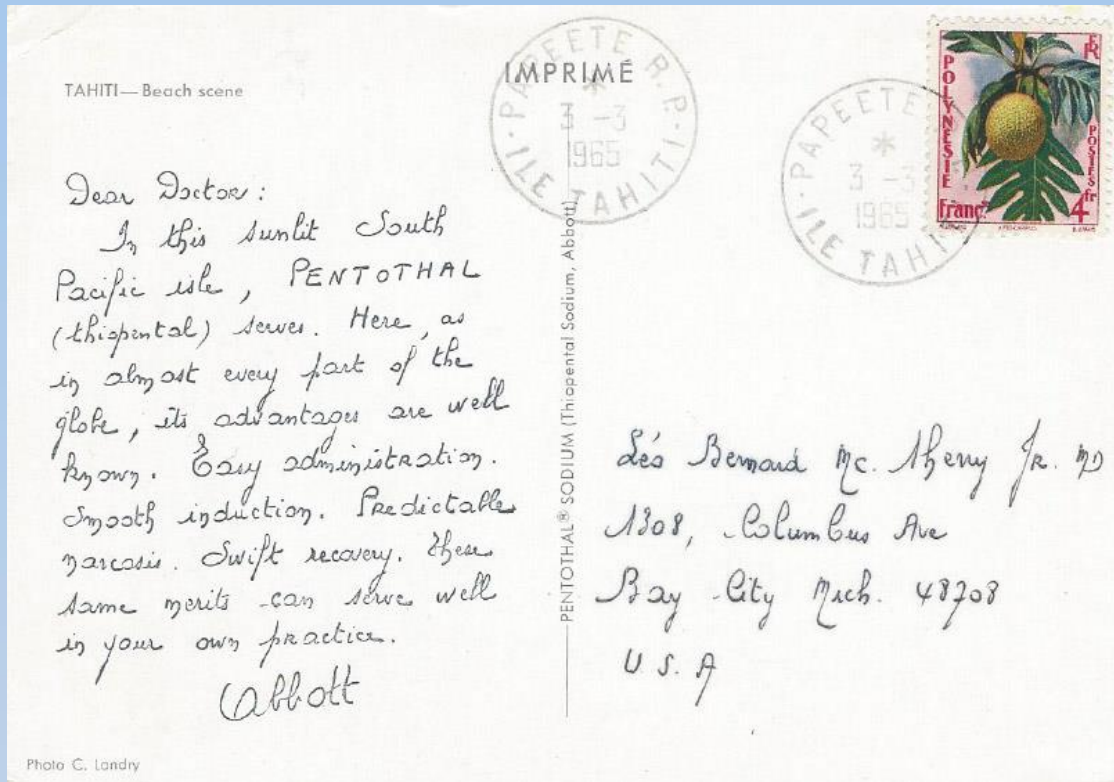 TAHITI—Beach scene
IMPRIMÉ
PAPEETE R.P.
3 -3
1965
ILE TAHITI
PAPEETE
3 -3
1965
ILE TAHITI
RF
POLYNESIE
POSTES
4fr
Dear Doctor:
In this sunlit South
Pacific isle, PENTOTHAL
(thiopental) serves. Here, as
in almost every part of the
globe, its advantages are well
known. Easy administration.
Smooth induction. Predictable
narcosis. Swift recovery. These
same merits can serve well
in your own practice.
Abbott
PENTOTHAL® SODIUM (Thiopental Sodium, Abbott)
Léo Bernard Mc. Jr. MD
1308, Columbus Ave
Bay City Mich. 48708
U.S.A
Photo C. Landry